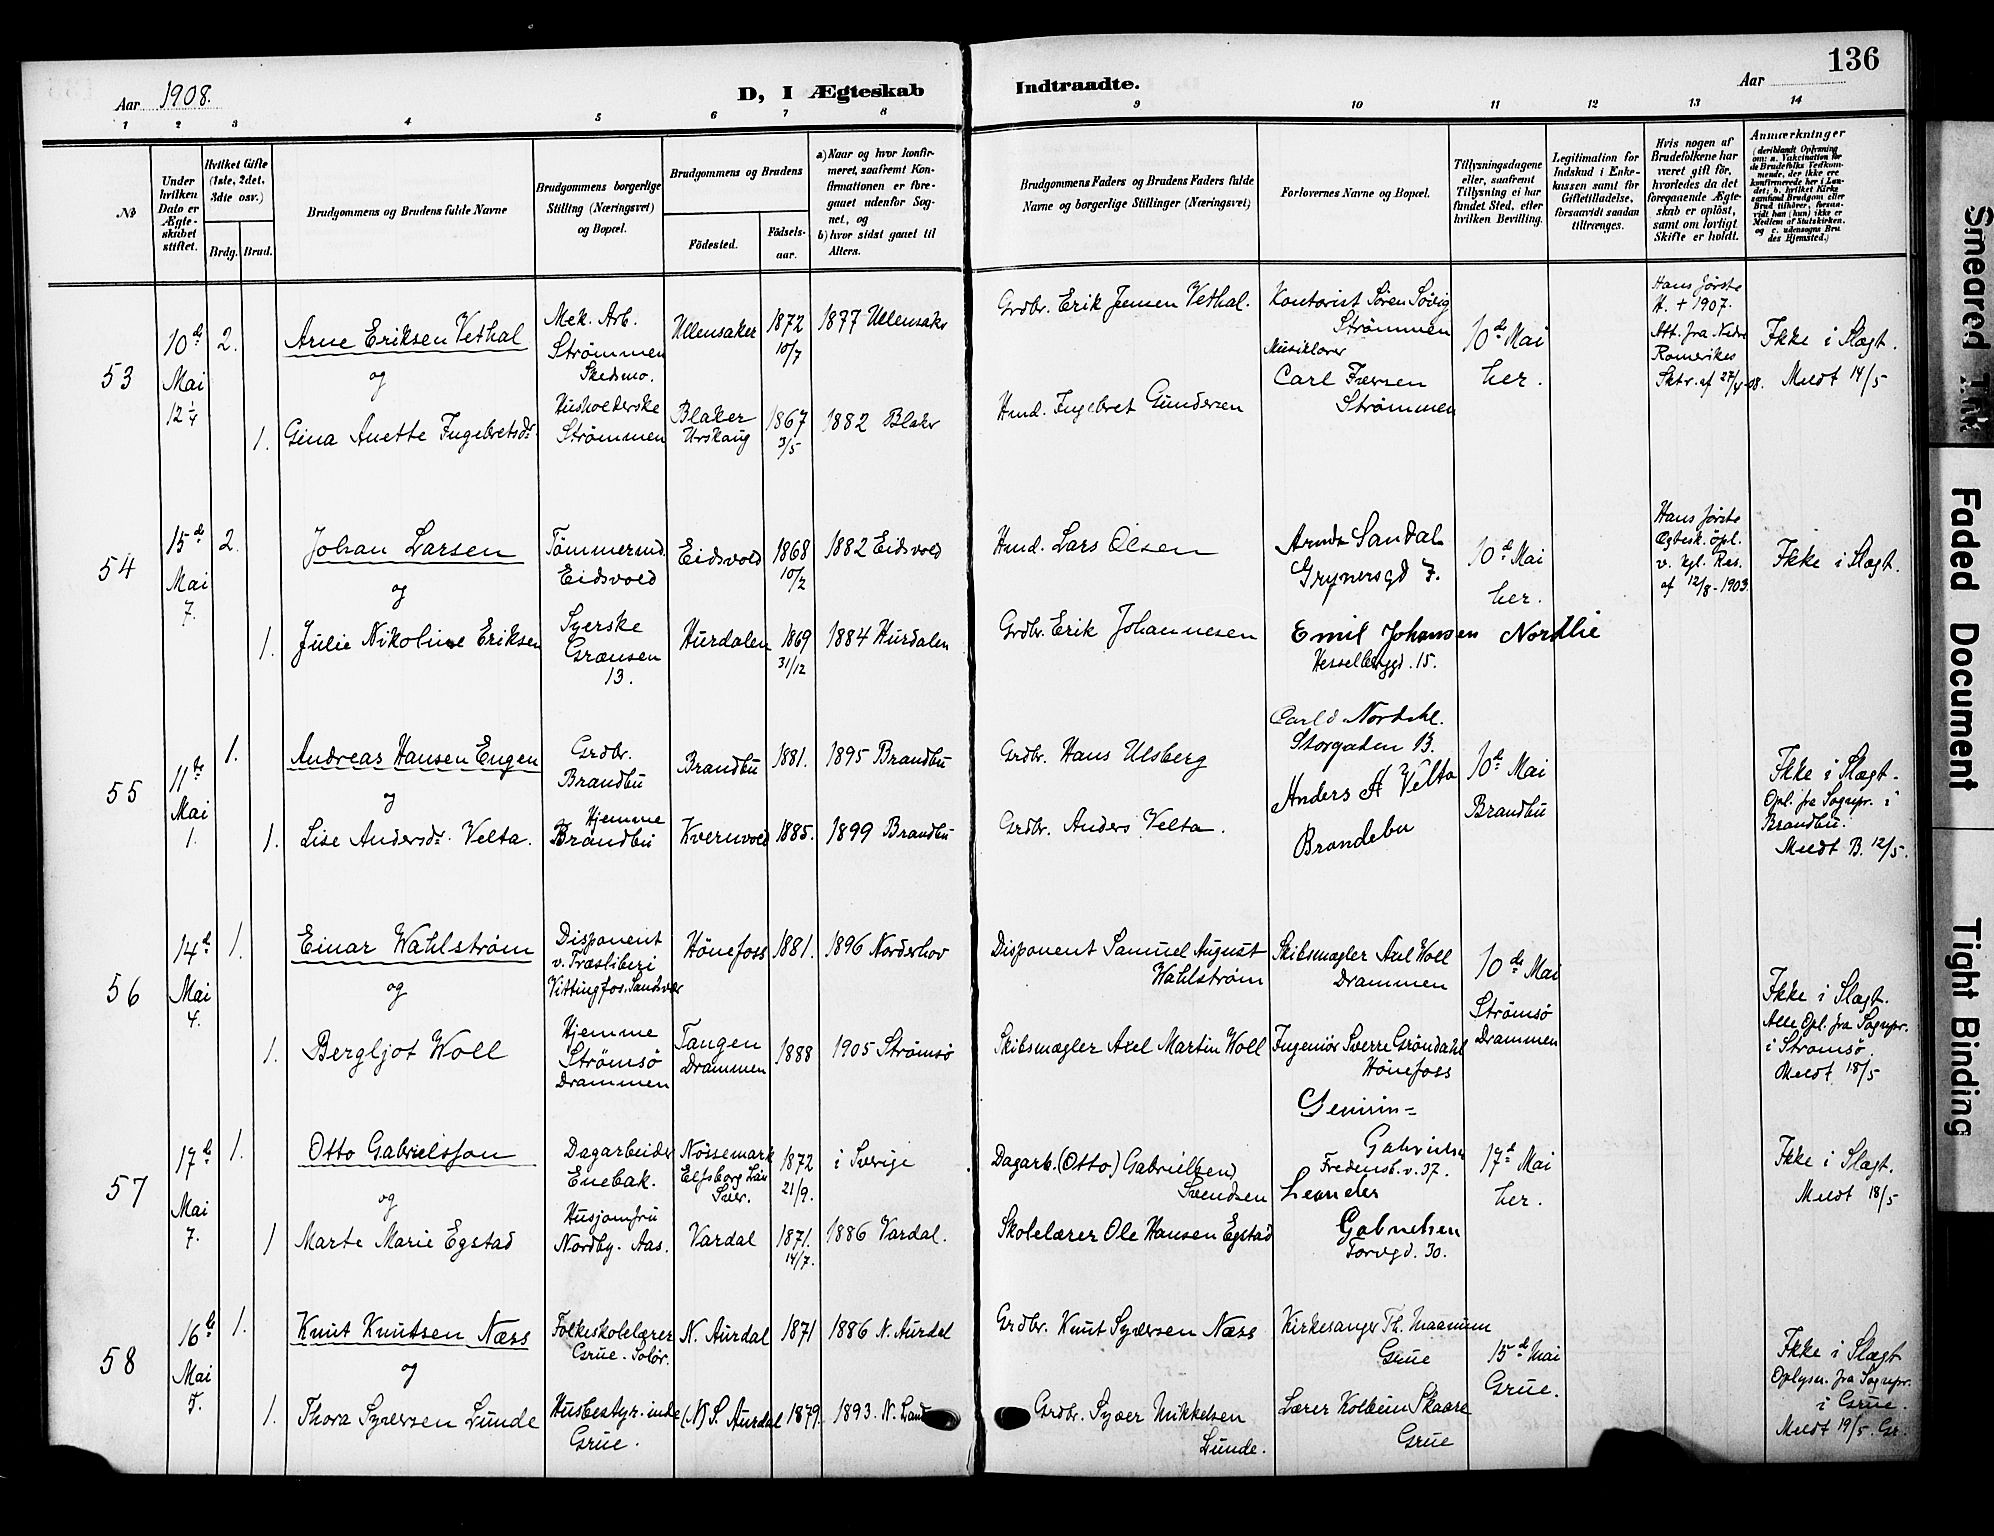 136
Aar 1908.
D, I Ægteskab
Indtraadte.
Aar
1 2 3 4 5 6 7 8 9 10 11 12 13 14
No
Under hvilken Dato er Ægteskabet stiftet.
Hvilket Gifte (1ste, 2det, 3die osv.)
Brdg. Brud.
Brudgommens og Brudens fulde Navne
Brudgommens borgerlige Stilling (Næringsvei) og Bopæl.
Brudgommens og Brudens
Födested.
Födselsaar.
a) Naar og hvor konfirmeret, saafremt Konfirmationen er foregaaet udenfor Sognet, og
b) hvor sidst gaaet til Alters.
Brudgommens Faders og Brudens Faders fulde Navne og borgerlige Stillinger (Næringsvei)
Forlovernes Navne og Bopæl.
Tillysningsdagene eller, saafremt Tillysning ei har fundet Sted, efter hvilken Bevilling.
Legitimation for Indskud i Enkekassen samt for Giftetilladelse, forsaavidt saadan tiltrænges.
Hvis nogen af Brudefolkene har været gift för, hvorledes da det foregaaende Ægteskab er oplöst, samt om lovligt Skifte er holdt.
Anmærkninger
(deriblandt Oplysning om: a. Vakcination for de Brudefolks Vedkommende, der ikke ere konfirmerede her i Landet; b. hvilket Kirkesamfund Brudgom eller Brud tilhörer, forsaavidt han (hun) ikke er Medlem af Statskirken, og c. udensogns Brudes Hjemsted.)
53
10de Mai 12 1/4
2.
Arne Eriksen Vethal
Mek. Arb. Strömmen Skedsmo.
Ullensaker
1872 10/7
1877 Ullensakr
Grdbr. Erik Jensen Vethal.
Kontorist Sören Söiig Strømmen
10de Mai her.
Hans förste H. † 1907. Att. fra Nedre Romerikes Sktr. af 27/4-08.
Ikke i Slægt. Meldt 14/5
og
1.
Gina Anette Ingebretsdr.
Husholderske Strömmen
Blaker Urskaug
1867 3/5
1882 Blakr
Hmd. Ingebret Gundersen
Musiklærer Carl Iversen Strømmen
54
15de Mai 7.
2.
Johan Larsen
Tömmermd. Eidsvold
Eidsvold
1868 10/2
1882 Eidsvold
Hmd. Lars Olsen
Sandal Grynersgd 7.
10de Mai her.
Hans förste Ægtesk. öpl. v. kgl. Res. af 12/8-1903.
Ikke i Slægt.
og
1.
Julie Nikoline Eriksen
Syerske Grænsen 13.
Hurdalen
1869 31/12
1884 Hurdalen
Grdbr. Erik Johannesen
Emil Johansen Nordlie
Hesselberggd. 15.
55
11te Mai 1.
1.
Andreas Hansen Engen
Grdbr. Brandbu
Brandbu
1881.
1895 Brandbu
Grdbr. Hans Ulsberg
Storgaden 13.
10de Mai Brandbu
Ikke i Slægt. Opl. fra Sognpr. i Brandbu. Meldt B. 12/5.
og
1.
Lise Andersdr. Velta.
Hjemme Brandbu
Kvernvold
1885.
1899 Brandbu
Grdbr. Anders Velta.
Anders A Velta
Brandebu
56
14de Mai 4.
1.
Einar Wahlström
Disponent v. Træsliberi Vittingfos. Sandsvær
Hönefoss
1881.
1896 Norderhov
Disponent Samuel August Wahlström
Skibsmægler Axel Woll Drammen
10de Mai Strömsö Drammen
Ikke i Slægt. Alle Opl. fra Sognpr. i Strömsö. Meldt 18/5
og
1.
Bergljot Woll
Hjemme Strömsö Drammen
Tangen Drammen
1888
1905 Strömsö
Skibsmægler Axel Martin Woll
Ingeniör Sverre Gröndahl Hönefoss
57
17de Mai 7.
1.
Otto Gabrielsson
Dagarbeider Enebak.
Nössemark Elfsborg Län Sver.
1872 21/9.
i Sverige
Dagarb. (Otto) Gabrielsen, Svendsen
Gabrielsen Fredensb.v. 37.
17de Mai her.
Ikke i Slægt. Meldt 18/5
og
1
Marte Marie Egstad
Husjomfru Nordby. Aas.
Vardal
1871. 14/7.
1886 Vardal.
Skolelærer Ole Hansen Egstad
Leander Gabrielsen Torvgd. 30.
58
16de Mai 5.
1.
Knut Knutsen Næss
Folkeskolelærer Grue. Solör.
N. Aurdal
1871
1886 N. Aurdal
Grdbr. Knut Syversen Næss
Kirkesanger Th. Maanum Grue
15de Mai Grue.
Ikke i Slægt Oplysn. fra Sognpr. i Grue. Meldt 19/5. Gr.
og
1.
Thora Syversen Lunde
Husbestyr.inde Grue.
(N) S. Aurdal
1879.
1893. N. Land
Grdbr. Syver Mikkelsen Lunde.
Lærer Kolbein Skaare Grue
Smeared Ink
Faded Document
Tight Binding